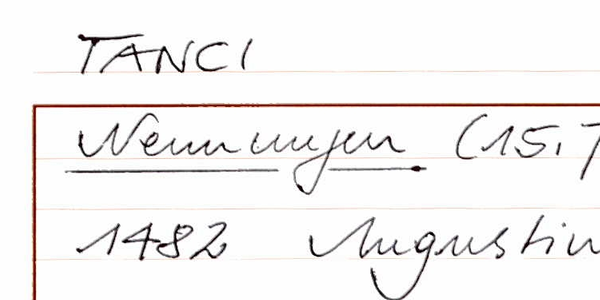 TANCI
Nennungen (15.
1482 Augustin